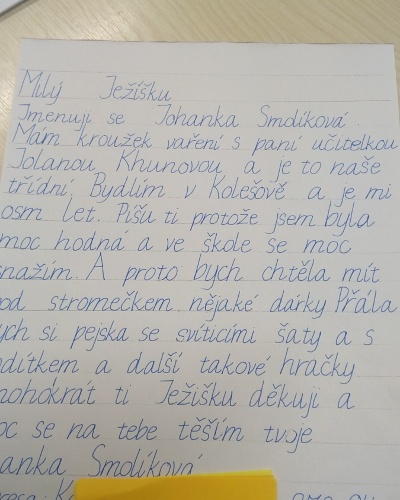 Milý Ježíšku
Jmenuji se Johanka Smolíková.
Mám kroužek vaření s paní učitelkou
Jolanou Khunovou a je to naše
třídní. Bydlím v Kolešově a je mi
osm let. Píšu ti protože jsem byla
moc hodná a ve škole se moc
snažím. A proto bych chtěla mít
pod stromečkem nějaké dárky Přála
bych si pejska se svíticími šaty a s
vodítkem a další takové hračky
mohokrát ti Ježíšku děkuji a
moc se na tebe těším tvoje
Johanka Smolíková